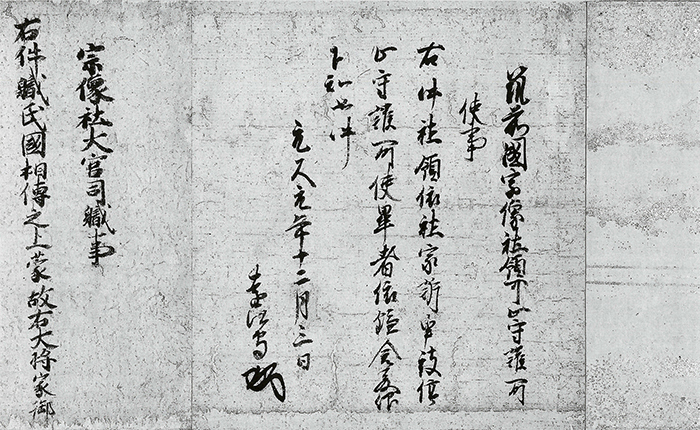 筑前國宗像社領可止守護所
使事
右件社領依社家訴申被停
止守護所使畢者依仰令
下知如件
元久元年十二月三日
遠江守
宗像社大宮司職事
右件職氏國相傳之上蒙故右大将家御